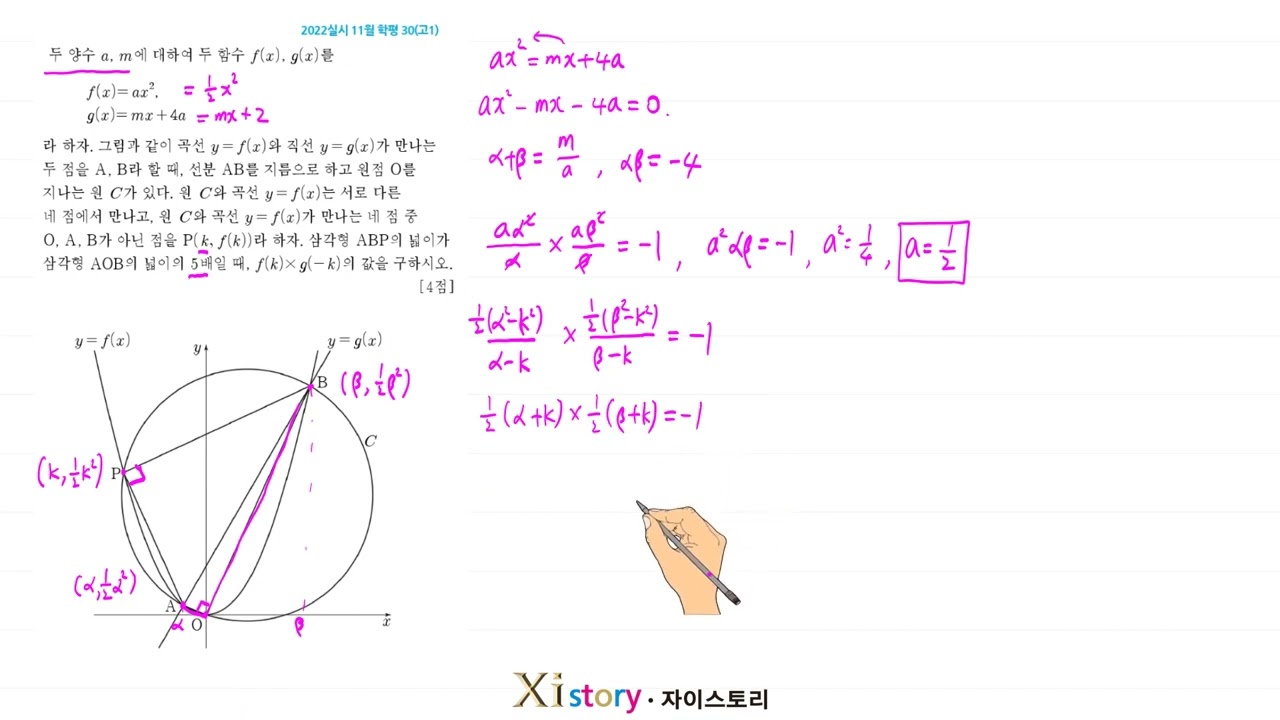 2022실시 11월 학평 30(고1)
두 양수 a, m에 대하여 두 함수 f(x), g(x)를
f(x)=ax², = ½x²
g(x)=mx+4a = mx+2
라 하자. 그림과 같이 곡선 y=f(x)와 직선 y=g(x)가 만나는
두 점을 A, B라 할 때, 선분 AB를 지름으로 하고 원점 O를
지나는 원 C가 있다. 원 C와 곡선 y=f(x)는 서로 다른
네 점에서 만나고, 원 C와 곡선 y=f(x)가 만나는 네 점 중
O, A, B가 아닌 점을 P(k, f(k))라 하자. 삼각형 ABP의 넓이가
삼각형 AOB의 넓이의 5배일 때, f(k)×g(-k)의 값을 구하시오.
[4점]
y=f(x)
y
y=g(x)
B (β, ½β²)
C
(k, ½k²) P
(α, ½α²)
A
α O β x
ax² = mx+4a
ax² - mx - 4a = 0.
α+β = m/a , αβ = -4
aα²/α × aβ²/β = -1 , a²αβ = -1 , a² = ¼ , a = ½
½(α²-k²)/α-k × ½(β²-k²)/β-k = -1
½(α+k) × ½(β+k) = -1
Xistory · 자이스토리